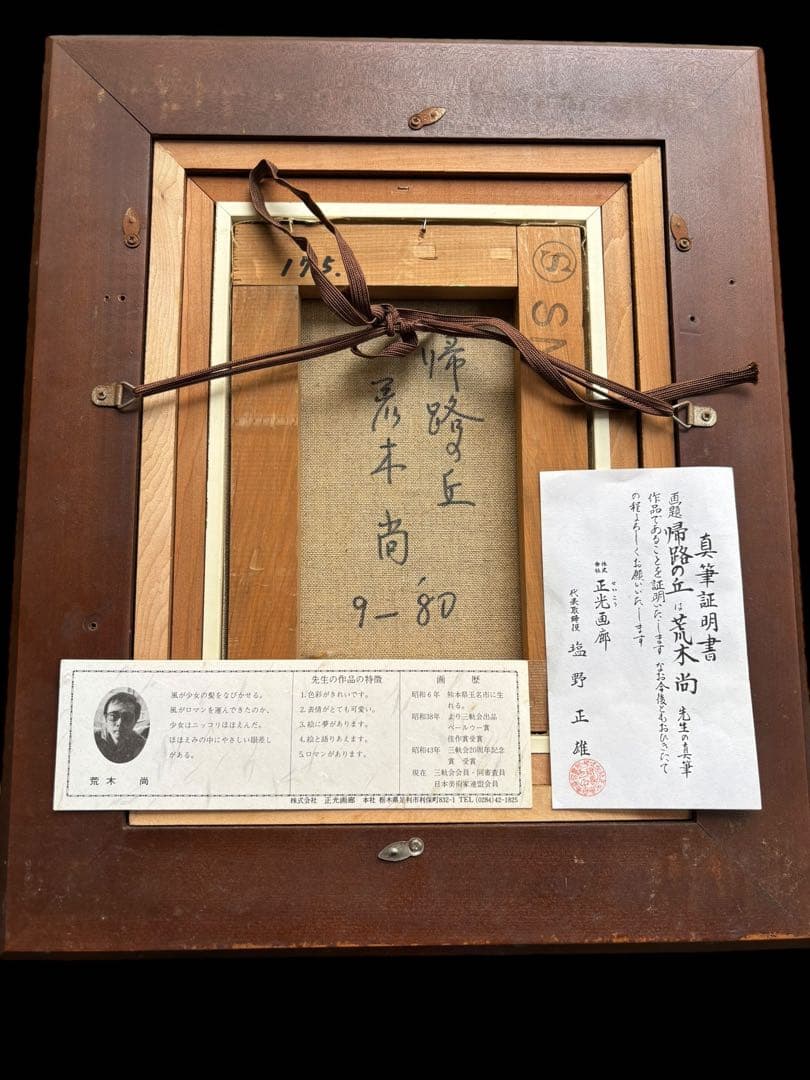 175.
SM
帰路の丘
荒木尚
9-'80
真筆証明書
画題 帰路の丘は荒木尚先生の真筆
作品であることを証明いたします なお今後ともおひきたて
の程よろしくお願いいたします
株式会社 せいこう 正光画廊
代表取締役 塩野正雄
荒木 尚
風が少女の髪をなびかせる。
風がロマンを運んできたのか、
少女はニッコリほほえんだ。
ほほえみの中にやさしい眼差し
がある。
先生の作品の特徴
1.色彩がきれいです。
2.表情がとても可愛い。
3.絵に夢があります。
4.絵と語りあえます。
5.ロマンがあります。
画歴
昭和6年 熊本県玉名市に生
れる。
昭和38年 より三軌会出品
ベールウー賞
佳作賞受賞
昭和43年 三軌会20周年記念
賞 受賞
現在 三軌会会員・同審査員
日本美術家連盟会員
株式会社 正光画廊 本社 栃木県足利市利保町832-1 TEL (0284)42-1825